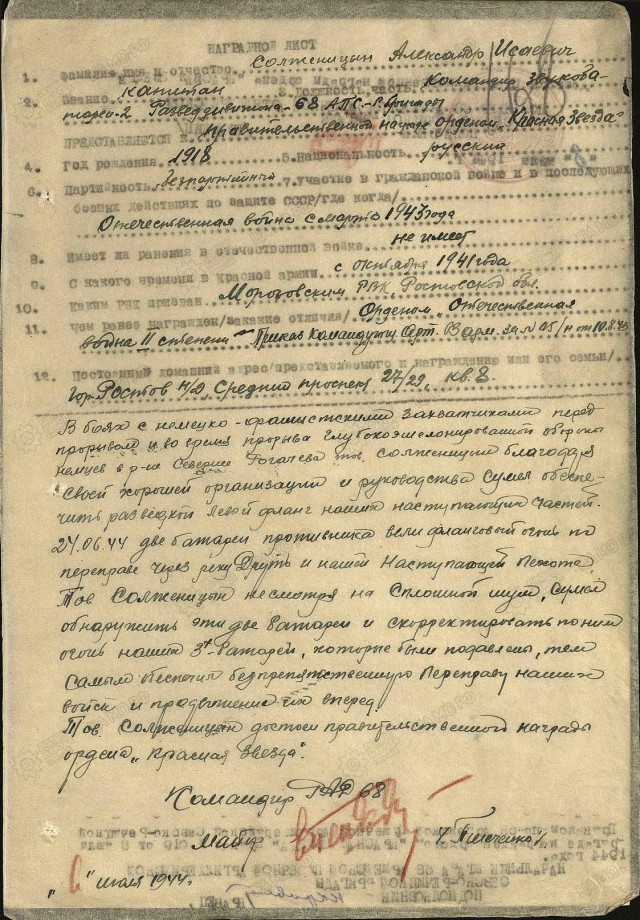 НАГРАДНОЙ ЛИСТ
1. Фамилия имя и отчество Солженицын Александр Исаевич
2. Звание капитан 3. Должность, часть Командир Звукоба-
тареи-2 Разведдивизиона - 68 АПС-Р бригады
Представляется к правительственной награде орденом „Красная Звезда"
4. Год рождения 1918 5. Национальность русский
6. Партийность беспартийный 7. участие в гражданской войне и в последующих
боевых действиях по защите СССР/где когда/
Отечественная война с марта 1943 года
8. Имеет ли ранения в отечественной войне не имеет
9. С какого времени в Красной армии с октября 1941 года
10. Каким РВК призван Морозовским РВК Ростовской обл.
11. чем ранее награжден/за какие отличия/ Орденом „Отечественная
война II степени - Приказ Командующ. Арт.
12. Постоянный домашний адрес/представляемого к награждению или его семьи/
гор. Ростов н/Д, Средний проспект 27/29, кв. 8.
В боях с немецко-фашистскими захватчиками перед
прорывом и во время прорыва глубокоэшелонированной обороны
немцев в р-не Севернее Рогачева тов. Солженицын благодаря
своей хорошей организации и руководства сумел обеспе-
чить разведкой левой фланг наших наступающих частей.
24.06.44 две батареи противника вели фланговый огонь по
переправе через реку Друть и нашей наступающей пехоте.
Тов. Солженицын несмотря на сплошной шум, сумел
обнаружить эти две батареи и скорректировать по ним
огонь наших 3х батарей, которые были подавлены, тем
самым обеспечил беспрепятственную переправу наших
войск и продвижение их вперед.
Тов. Солженицын достоин правительственной награды
ордена „Красная Звезда".
Командир РАД 68
майор /Пшеченко/
июля 1944г.